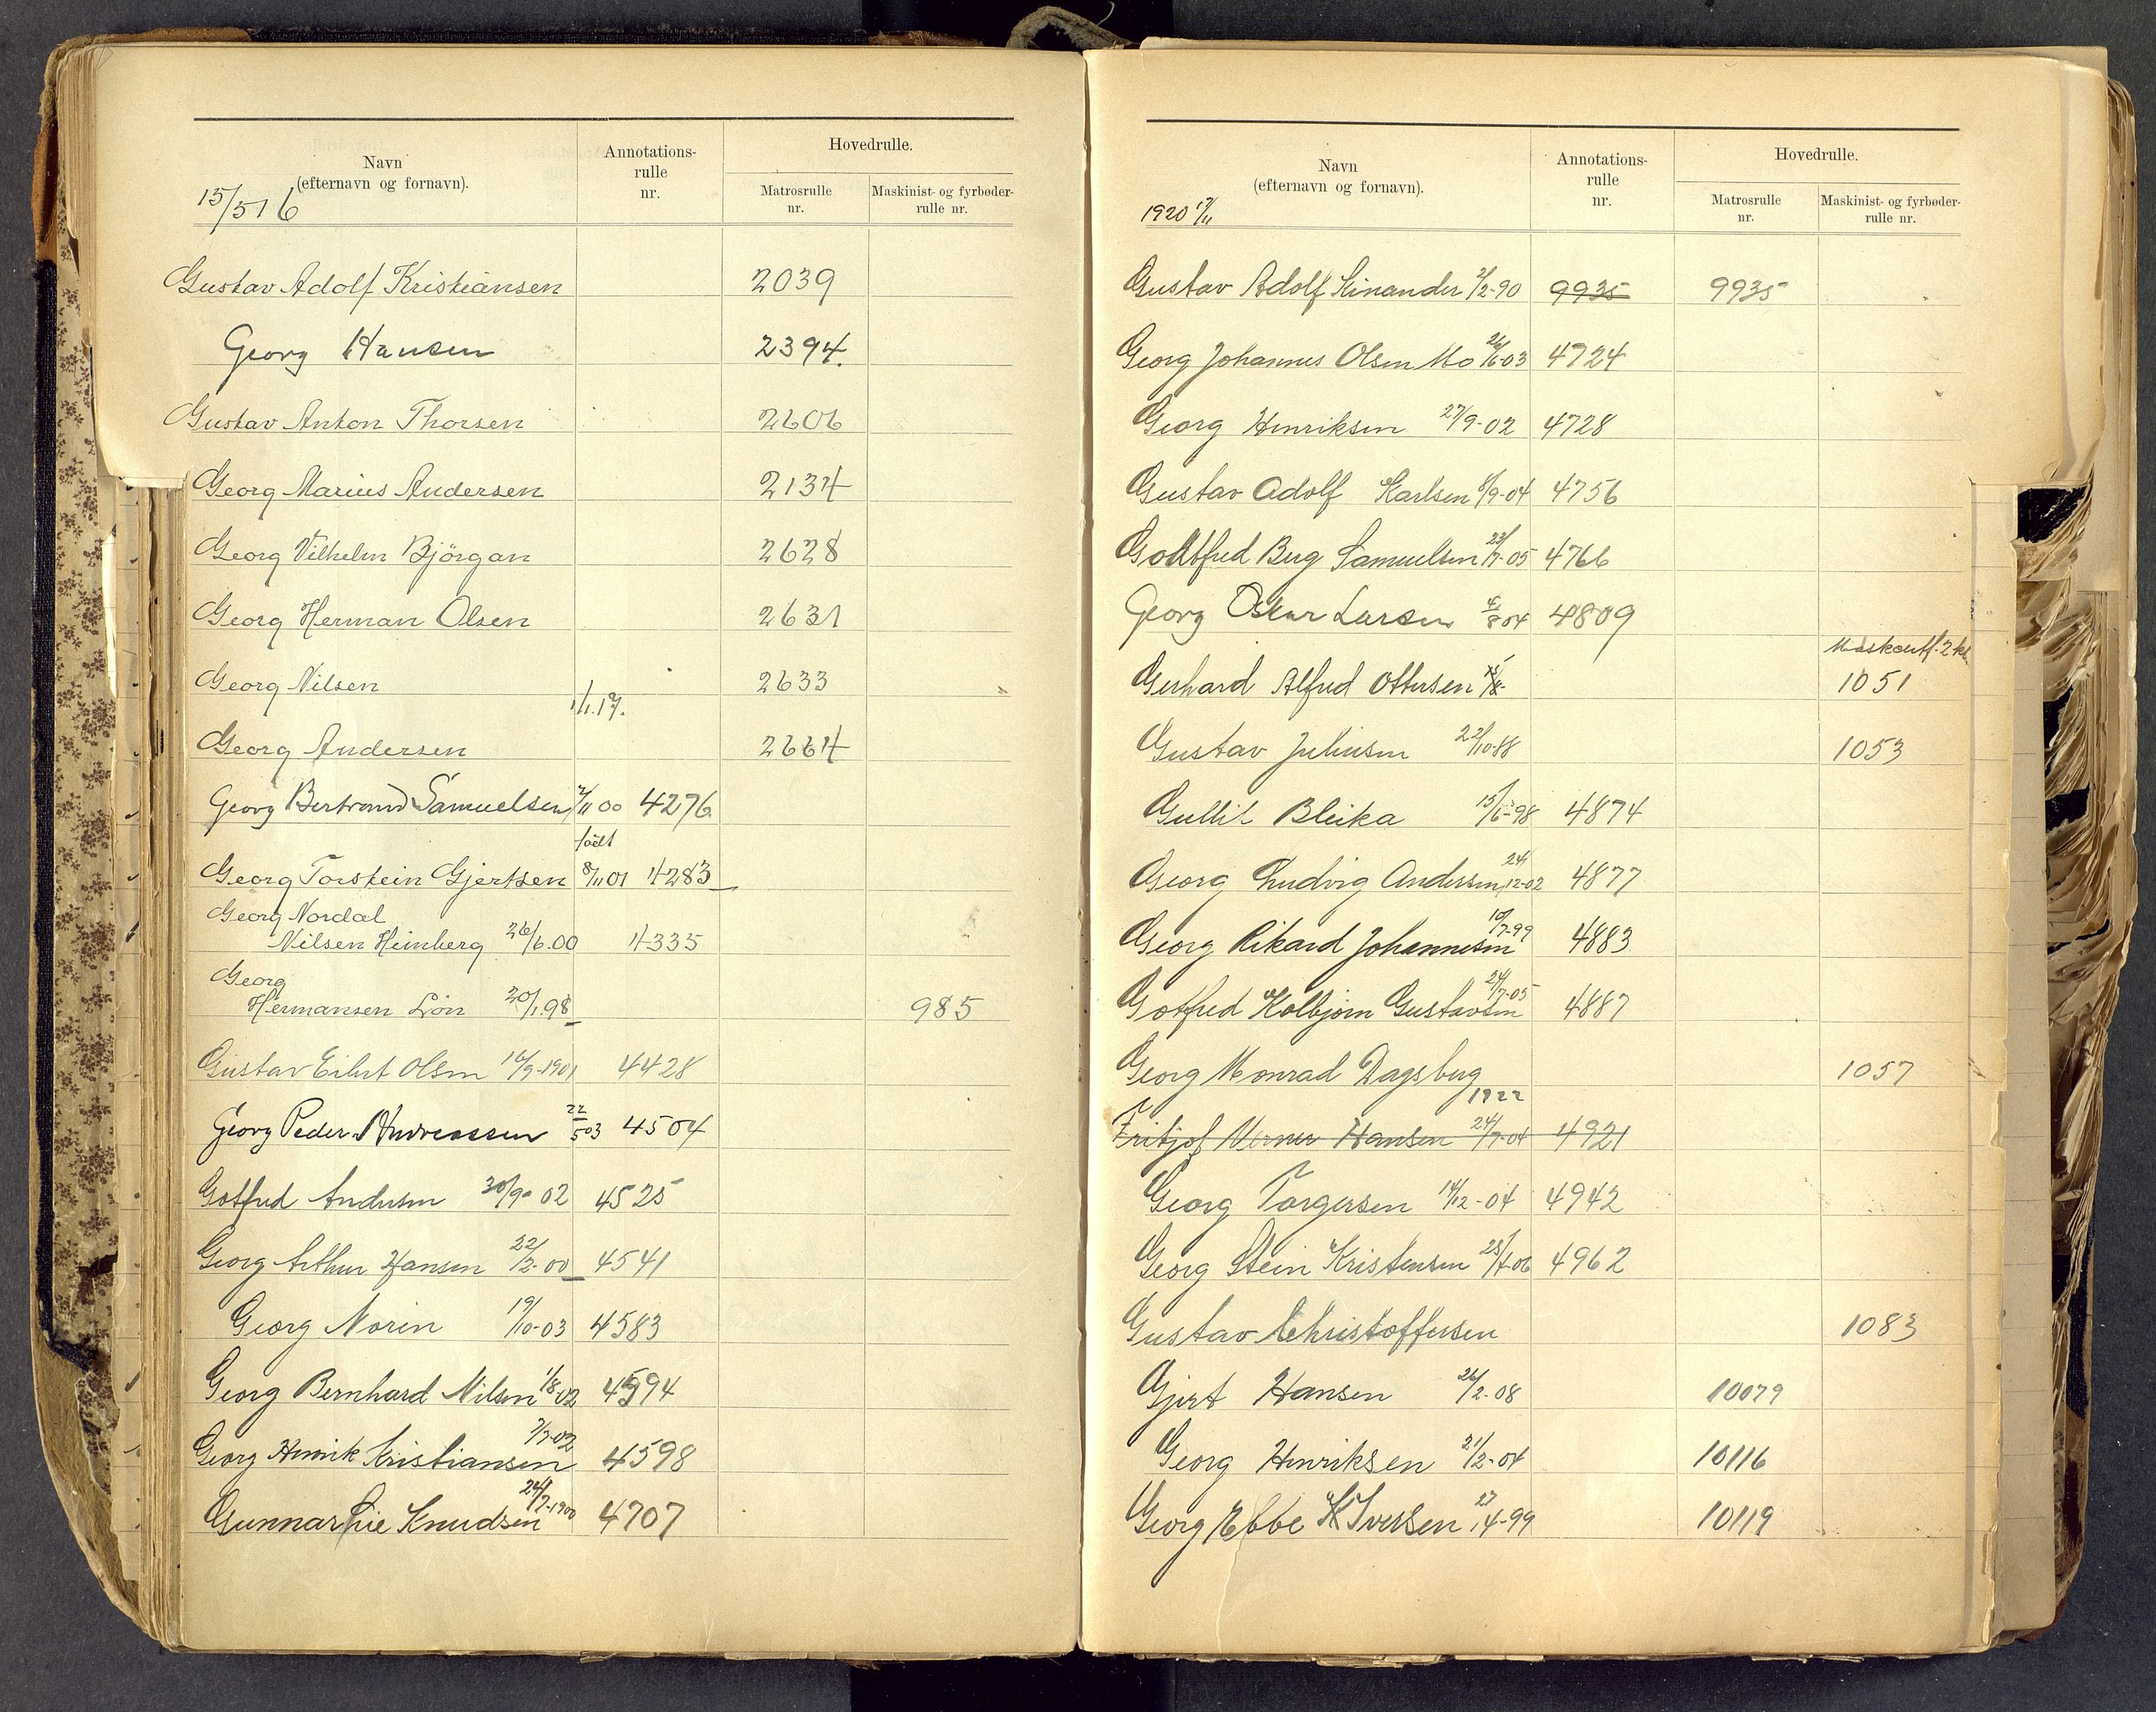 Navn
(efternavn og fornavn).
15/5 16
Annotations-
rulle
nr.
Hovedrulle.
Matrosrulle
nr.
Maskinist- og fyrbøder-
rulle nr.
Gustav Adolf Kristiansen 2039
Georg Hansen 2394.
Gustav Anton Thorsen 2606
Georg Marius Andersen 2134
Georg Vilhelm Björgan 2628
Georg Herman Olsen 2631
Georg Nilsen 2633
1/1.17.
Georg Andersen 2664
Georg Bertrand Samuelsen 2/11 00 4276
født
Georg Torstein Gjertsen 8/11 01 4283
Georg Nordal
Nilsen Heimberg 26/6.00 4335
Georg
Hermansen Lön 20/1.98 985
Gustav Eilert Olsen 16/9-1901 4428
Georg Peder Andreassen 22/5 03 4504
Gotfred Andersen 30/9-02 4525
Georg Arthur Hansen 22/2-00 4541
Georg Norin 19/10-03 4583
Georg Bernhard Nilsen 1/8 02 4594
Georg Henrik Kristiansen 7/7-02 4598
Gunnar Lie Knudsen 24/7-1900 4707
Navn
(efternavn og fornavn).
1920 17/11
Annotations-
rulle
nr.
Hovedrulle.
Matrosrulle
nr.
Maskinist- og fyrbøder-
rulle nr.
Gustav Adolf Kinander 2/2-90 9935 9935
Georg Johannes Olsen Mo 26/6-03 4724
Georg Henriksen 27/9-02 4728
Gustav Adolf Karlsen 8/9-04 4756
Godtfred Berg Samuelsen 23/7-05 4766
Georg Oskar Larsen 4/8 04 4809
Gerhard Alfred Ottersen 1051
Gustav Juliusen 22/10-88 1053
Gullik Bleika 15/6-98 4874
Georg Ludvig Andersen 24/12-02 4877
Georg Rikard Johannesen 10/7-99 4883
Gotfred Kolbjørn Gustavsen 24/7-05 4887
Georg Monrad Dagsberg 1057
1922
Fritjof Verner Hansen 24/7-04 4921
Georg Torgersen 14/12-04 4942
Georg Stein Kristensen 25/1-06 4962
Gustav Christoffersen 1083
Gjert Hansen 26/2-08 10079
Georg Henriksen 21/2-04 10116
Georg Ebbe K Iversen 27/4-99 10119